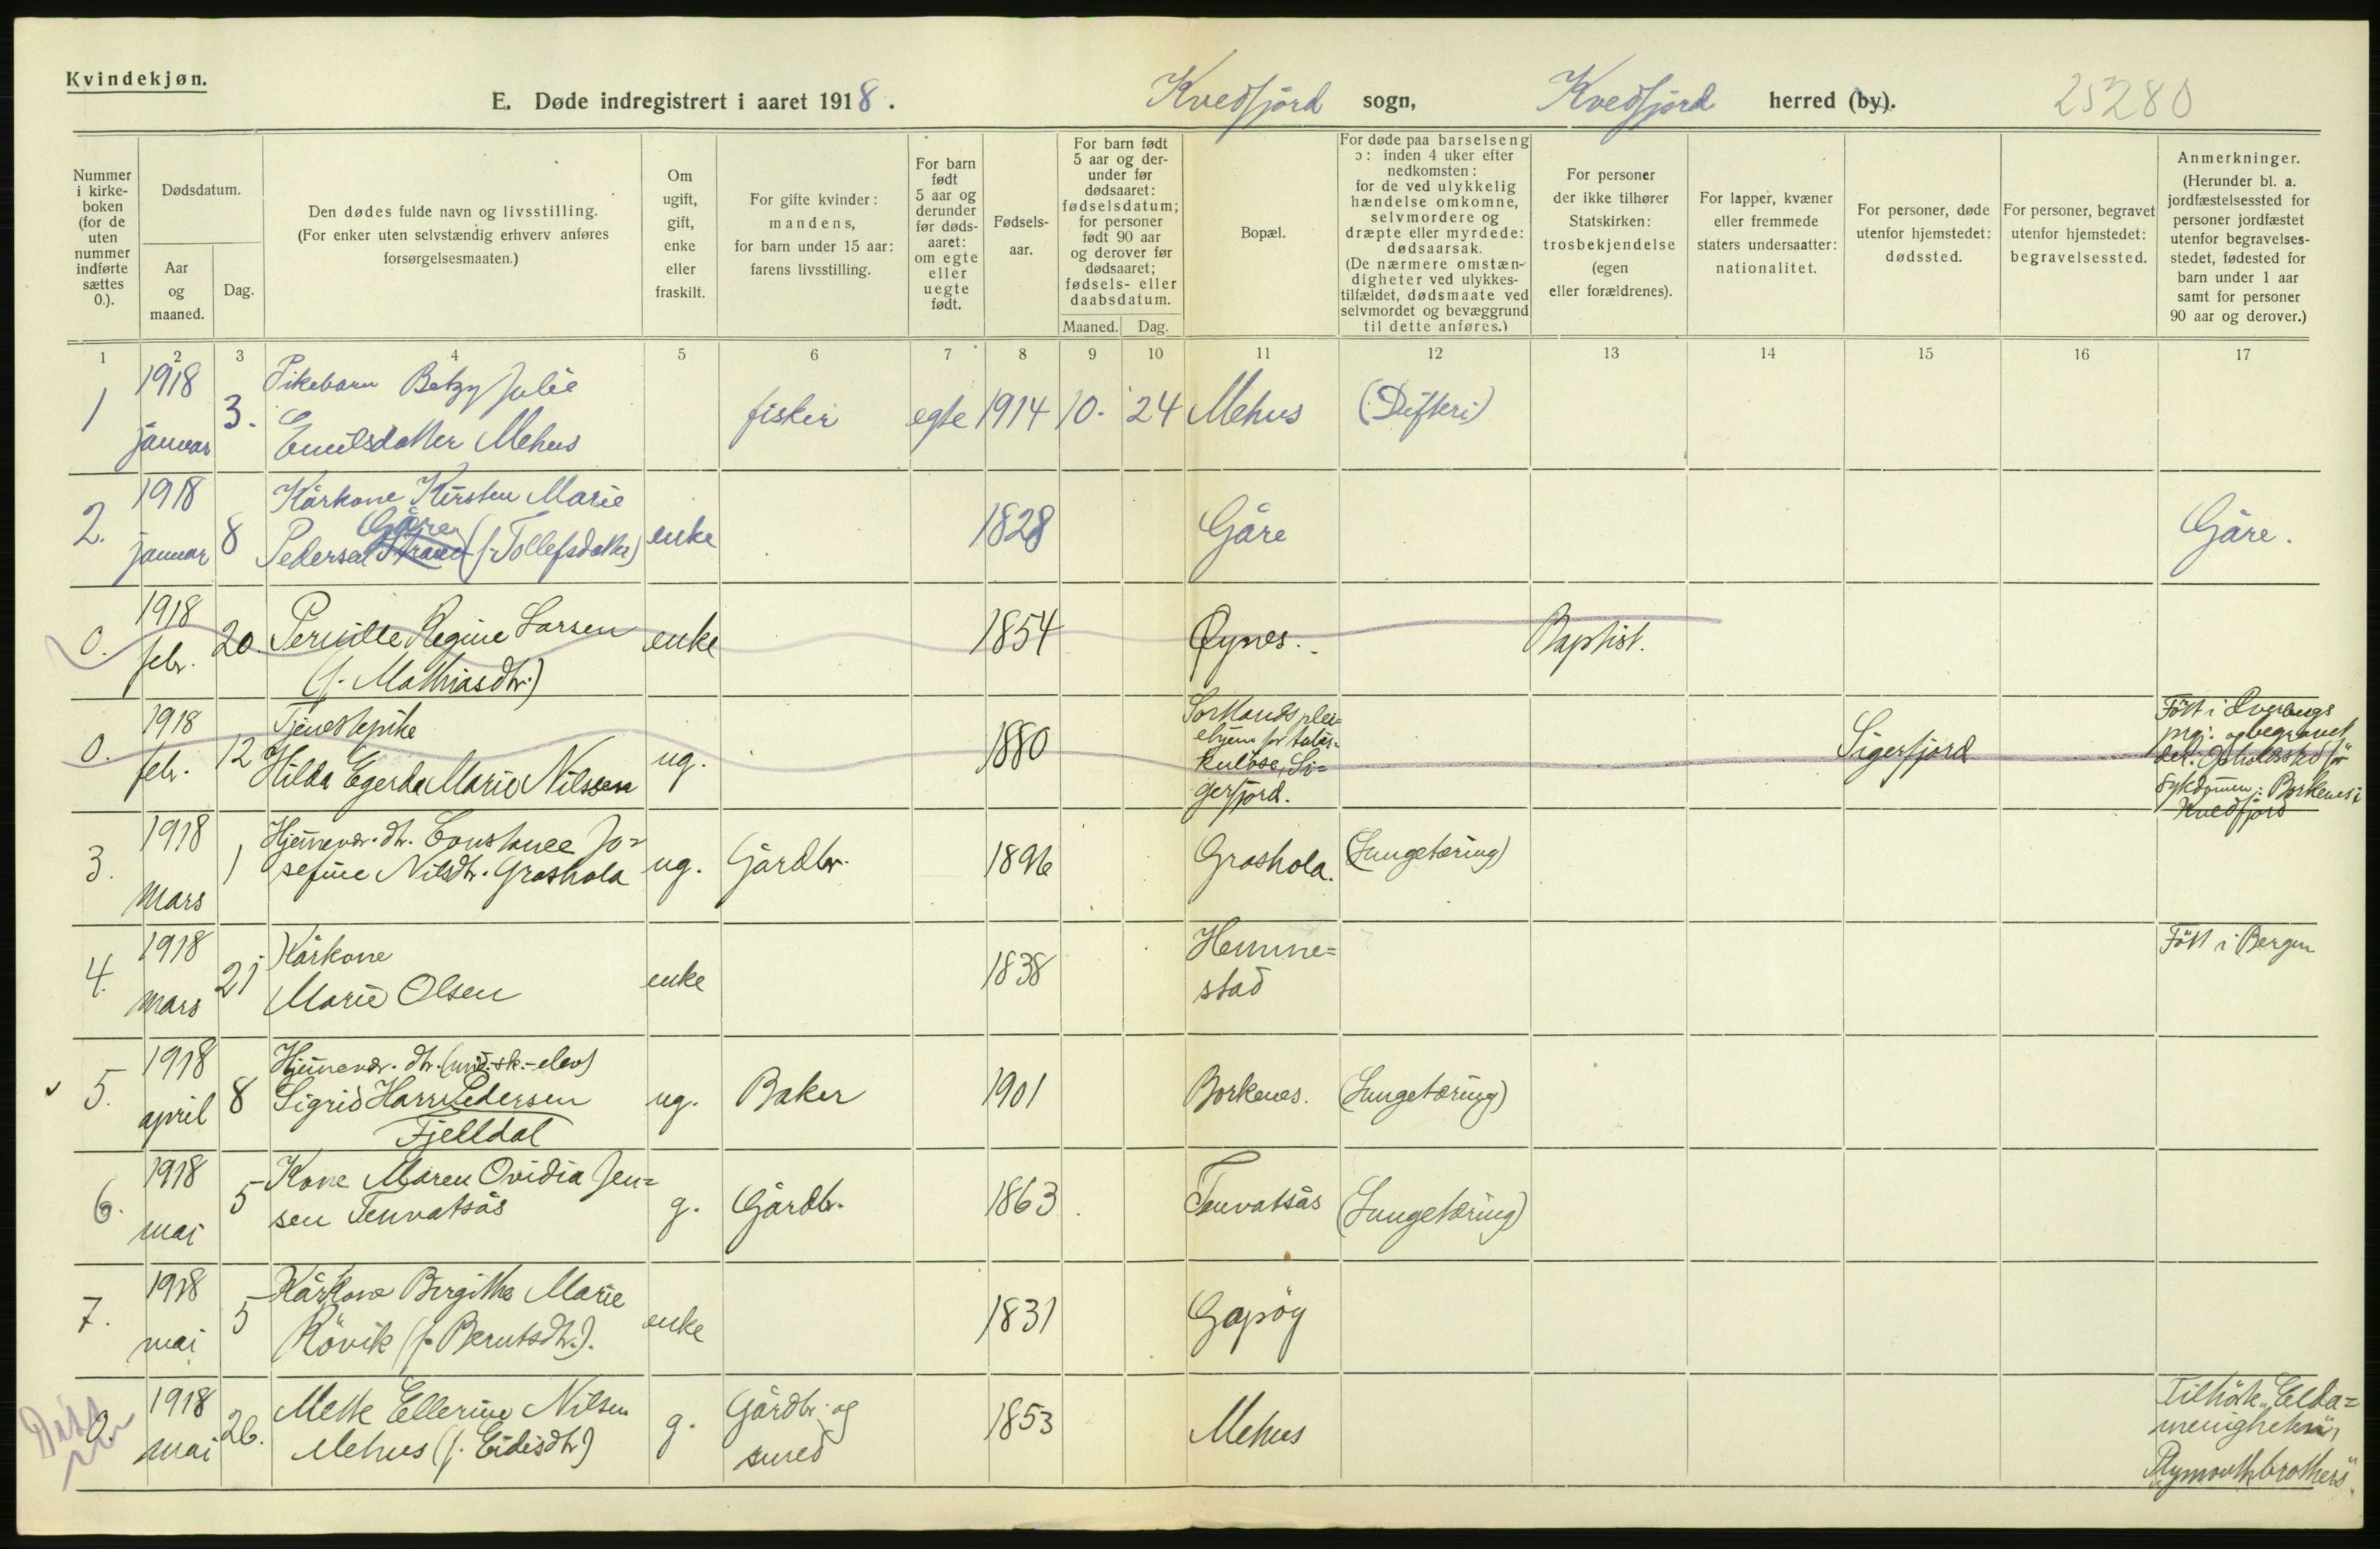 Kvindekjøn.
E. Døde indregistrert i aaret 1918.
Kvedfjord sogn, Kvedfjord herred (by).
25280
Nummer i kirke-boken (for de uten nummer indførte sættes 0.).
Dødsdatum.
Aar og maaned.
Dag.
Den dødes fulde navn og livsstilling.
(For enker uten selvstændig erhverv anføres
forsørgelsesmaaten.)
Om ugift, gift, enke eller fraskilt.
For gifte kvinder:
mandens,
for barn under 15 aar:
farens livsstilling.
For barn født 5 aar og derunder før døds-aaret: om egte eller uegte født.
Fødsels-aar.
For barn født 5 aar og der-under før dødsaaret: fødselsdatum; for personer født 90 aar og derover før dødsaaret; fødsels- eller daabsdatum.
Maaned. Dag.
Bopæl.
For døde paa barselseng
ɔ: inden 4 uker efter
nedkomsten:
for de ved ulykkelig
hændelse omkomne,
selvmordere og
dræpte eller myrdede:
dødsaarsak.
(De nærmere omstæn-
digheter ved ulykkes-
tilfældet, dødsmaate ved
selvmordet og bevæggrund
til dette anføres.)
For personer
der ikke tilhører
Statskirken:
trosbekjendelse
(egen
eller forældrenes).
For lapper, kvæner
eller fremmede
staters undersaatter:
nationalitet.
For personer, døde
utenfor hjemstedet:
dødssted.
For personer, begravet
utenfor hjemstedet:
begravelsessted.
Anmerkninger.
(Herunder bl. a.
jordfæstelsessted for
personer jordfæstet
utenfor begravelses-
stedet, fødested for
barn under 1 aar
samt for personer
90 aar og derover.)
1 2 3 4 5 6 7 8 9 10 11 12 13 14 15 16 17
1 1918 januar 3. Pikebarn Betzy Julie
Emilsdatter Mehus fisker egte 1914 10. 24 Mehus (Difteri)
2. 1918 januar 8 Kårkone Kirsten Marie
Gåre
Pedersen Strand (f. Tollefsdatter) enke 1828 Gåre Gåre.
0. 1918 febr. 20. Pernille Regine Larsen
(f. Mathiasdtr.) enke 1854 Øynes. Baptist.
0. 1918 febr. 12 Tjenestepike
Hilda Egerda Marie Nilssen ug. 1880
Sortlands plei=
ehjem for tuber=
kuløse, Si=
gerfjord.
Sigerfjord
Født i Kverbergs
prgj. og begravet
der. Opholdssted før
sykdommen: Borkenes i
Kvedfjord
3. 1918 mars 1 Hjemmevær. dtr. Constance Jo=
sefine Nilsdtr. Grashola ug. Gårdbr. 1896 Grashola. (Lungetæring)
4. 1918 mars 21 Kårkone
Marie Olsen enke 1838 Hemme=
stad Født i Bergen
5. 1918 april 8 Hjemmevær. dtr. (mid.sk.-elev)
Sigrid Harr Pedersen
Fjelldal ug. Baker 1901 Borkenes. (Lungetæring)
6. 1918 mai 5 Kone Maren Ovidia Jen=
sen Tenvatsås g. Gårdbr. 1863 Tenvatsås (Lungetæring)
7. 1918 mai 5 Kårkone Birgitha Marie
Røvik (f. Berntsdtr.). enke 1831 Gapøy
0. 1918 mai 26. Mette Ellerine Nilsen
Mehus (f. Eidisdtr) g. Gårdbr. og
smed 1853 Mehus
Tilhørte "Elda=
menigheten",
"Plymouthbrothers".